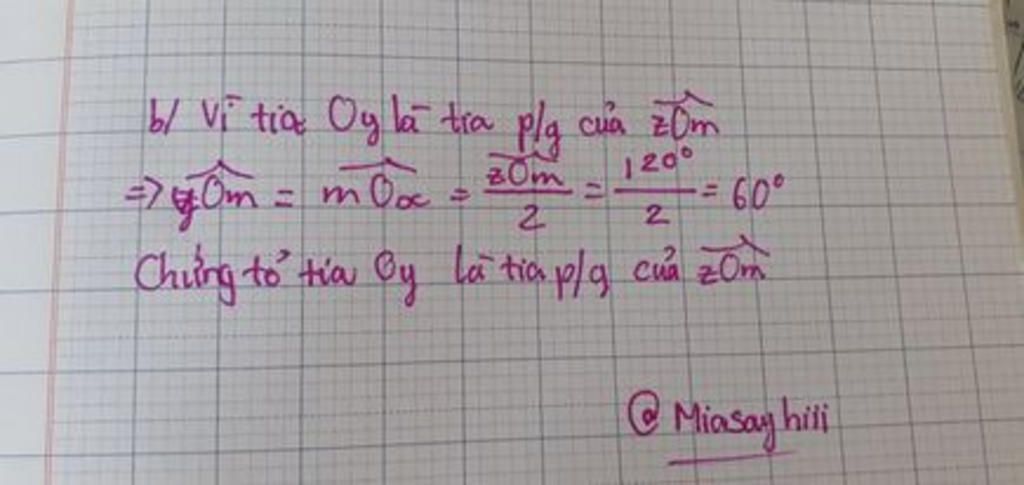 b/ Vì tia Oy là tia p/g của \widehat{zOm}
=> \widehat{yOm} = \widehat{mOx} = \frac{\widehat{zOm}}{2} = \frac{120°}{2} = 60°
Chứng tỏ tia Oy là tia p/g của \widehat{zOm}
@ Miasayhiii